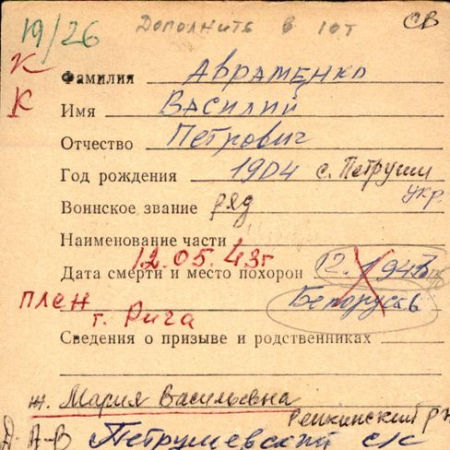 19/26 Дополнить в 10т СВ
К
Фамилия Авраменко
К
Имя Василий
Отчество Петрович
Год рождения 1904 с. Петруши
укр.
Воинское звание ряд
Наименование части
12.05.43г
Дата смерти и место похорон 12.1943
плен Белорусь
г. Рига
Сведения о призыве и родственниках
ж. Мария Васильевна
Репкинский р-н
Д-А-В Петрушевский с/с